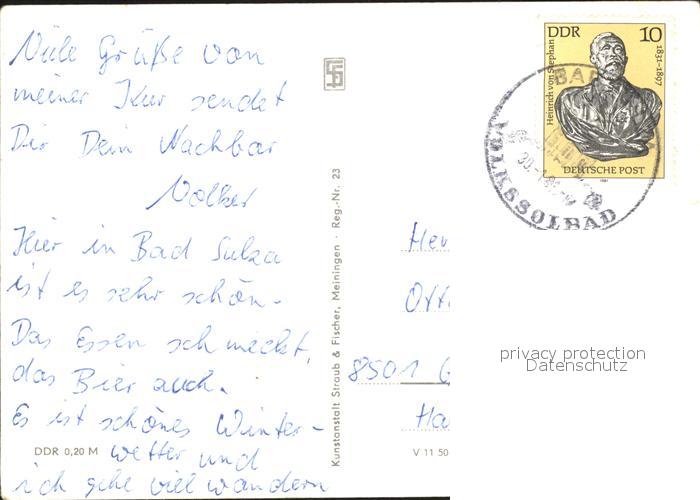 Viele Grüße von
meiner Kur sendet
Dir Dein Nachbar
Volker
Hier in Bad Sulza
ist es sehr schön.
Das Essen schmeckt,
das Bier auch.
Es ist schönes Winter-
wetter und
ich gehe viel wandern
DDR 0,20 M
Kunstanstalt Straub & Fischer, Meiningen · Reg.-Nr. 23
DDR 10
Heinrich von Stephan
1831-1897
DEUTSCHE POST
1981
BAD
SOLBAD
Her
Otto
8501 G
Ha
V 11 50
privacy protection
Datenschutz